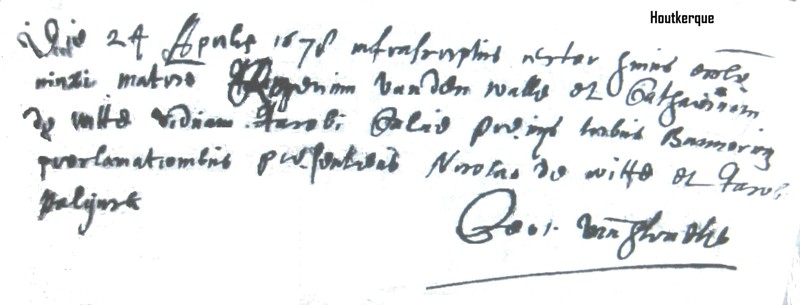 Houtkerque
Die 24 Aprilis 1678 infrascriptus rector huius eccle
vinxi matrio Rogerium vanden walle et Catharinam
de witte viduam Jacobi Calie prævijs tribus Bannorum
proclamationibus præsentibus Nicolao de witte et Jacobo